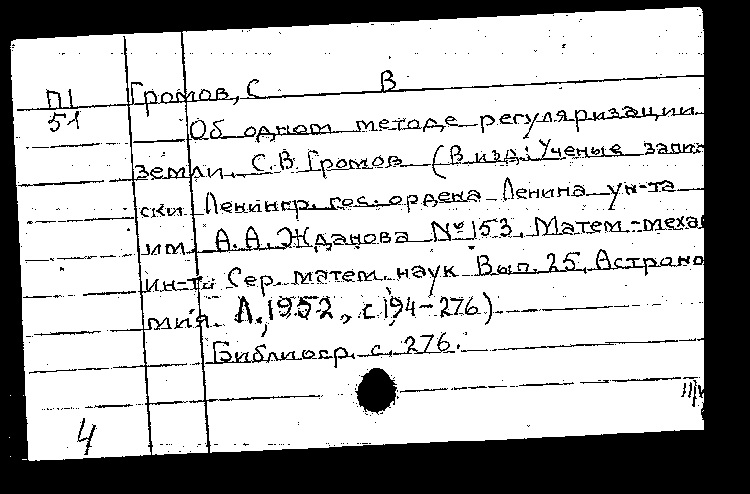 П1 Громов, С В
51
Об одном методе регуляризации
земли. С.В Громов (В изд: Ученые запи-
ски Ленингр. гос. ордена Ленина ун-та
им. А.А. Жданова № 153. Матем.-меха
ин-та Сер. матем. наук Вып. 25, Астроно
мия. Л., 1952, с 194-276)
Библиогр. с. 276.
4